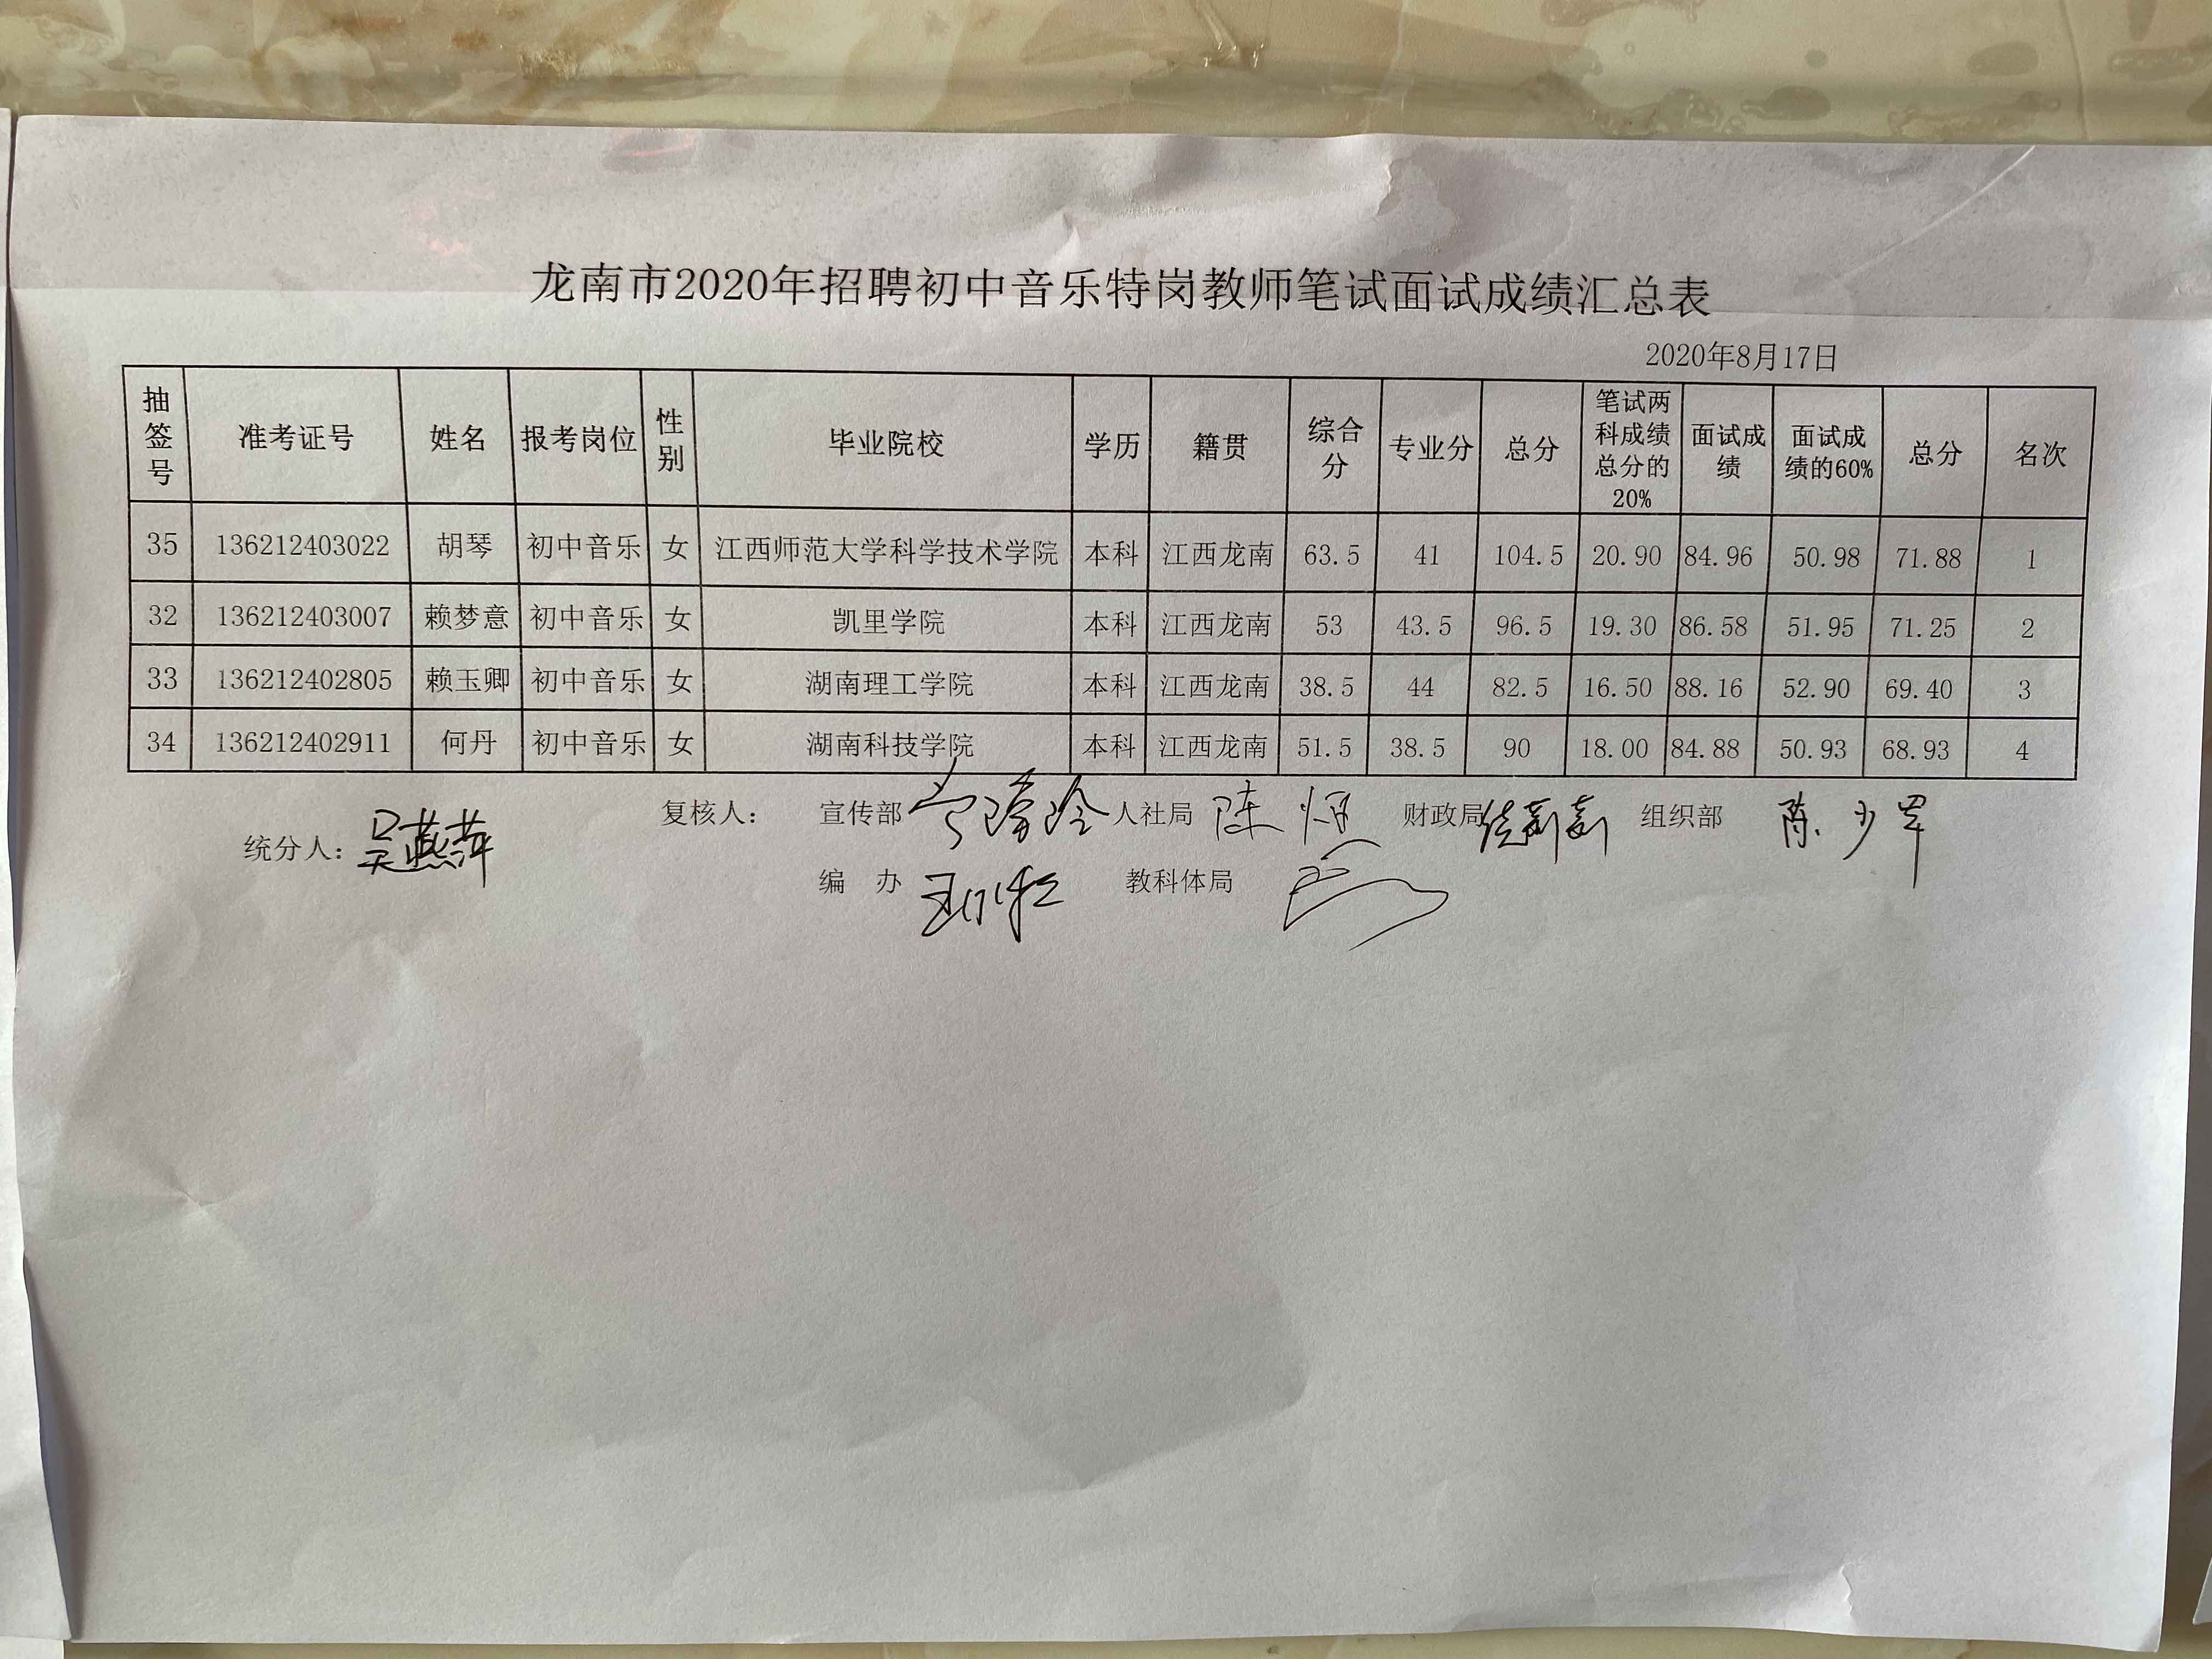 龙南市2020年招聘初中音乐特岗教师笔试面试成绩汇总表
2020年8月17日
抽签号 准考证号 姓名 报考岗位 性别 毕业院校 学历 籍贯 综合分 专业分 总分 笔试两科成绩总分的20% 面试成绩 面试成绩的60% 总分 名次
35 136212403022 胡琴 初中音乐 女 江西师范大学科学技术学院 本科 江西龙南 63.5 41 104.5 20.90 84.96 50.98 71.88 1
32 136212403007 赖梦意 初中音乐 女 凯里学院 本科 江西龙南 53 43.5 96.5 19.30 86.58 51.95 71.25 2
33 136212402805 赖玉卿 初中音乐 女 湖南理工学院 本科 江西龙南 38.5 44 82.5 16.50 88.16 52.90 69.40 3
34 136212402911 何丹 初中音乐 女 湖南科技学院 本科 江西龙南 51.5 38.5 90 18.00 84.88 50.93 68.93 4
统分人：吴燕萍 复核人： 宣传部 人社局 陈 财政局 组织部 陈少军
编 办 教科体局